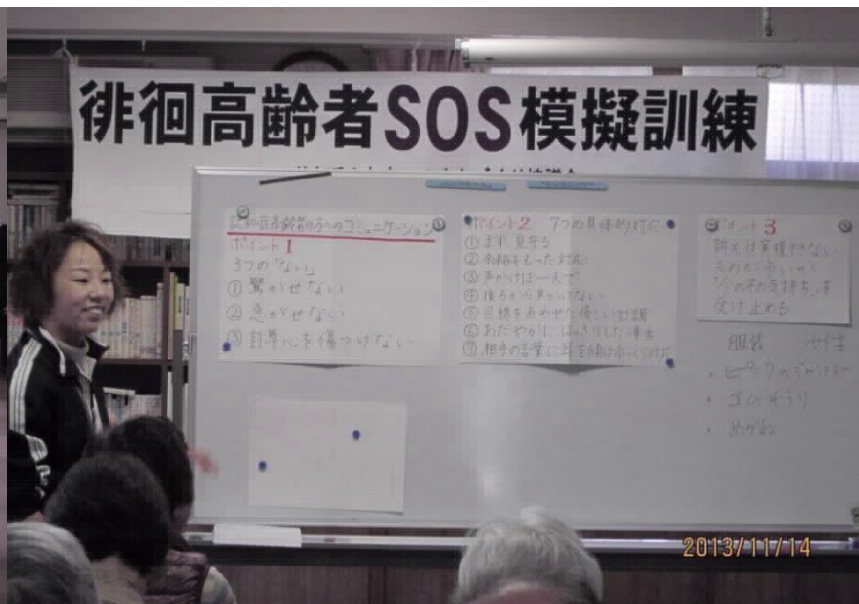 徘徊高齢者SOS模擬訓練
認知症高齢者の方へのコミュニケーション
ポイント1
3つの「ない」
① 驚かせない
② 急がせない
③ 自尊心を傷つけない
ポイント2 7つの具体的対応
① まず見守る
② 余裕をもった対応
③ 声かけは一人で
④ 後ろから声かけない
⑤ 目線をあわせた優しい口調
⑥ おだやかに はっきりした
⑦ 相手の言葉に耳を傾け
ポイント3
訴えは実現できない
「今のその気持ち」を
受け止める
服装 女性
ゴムぞうり
めがね
2013/11/14